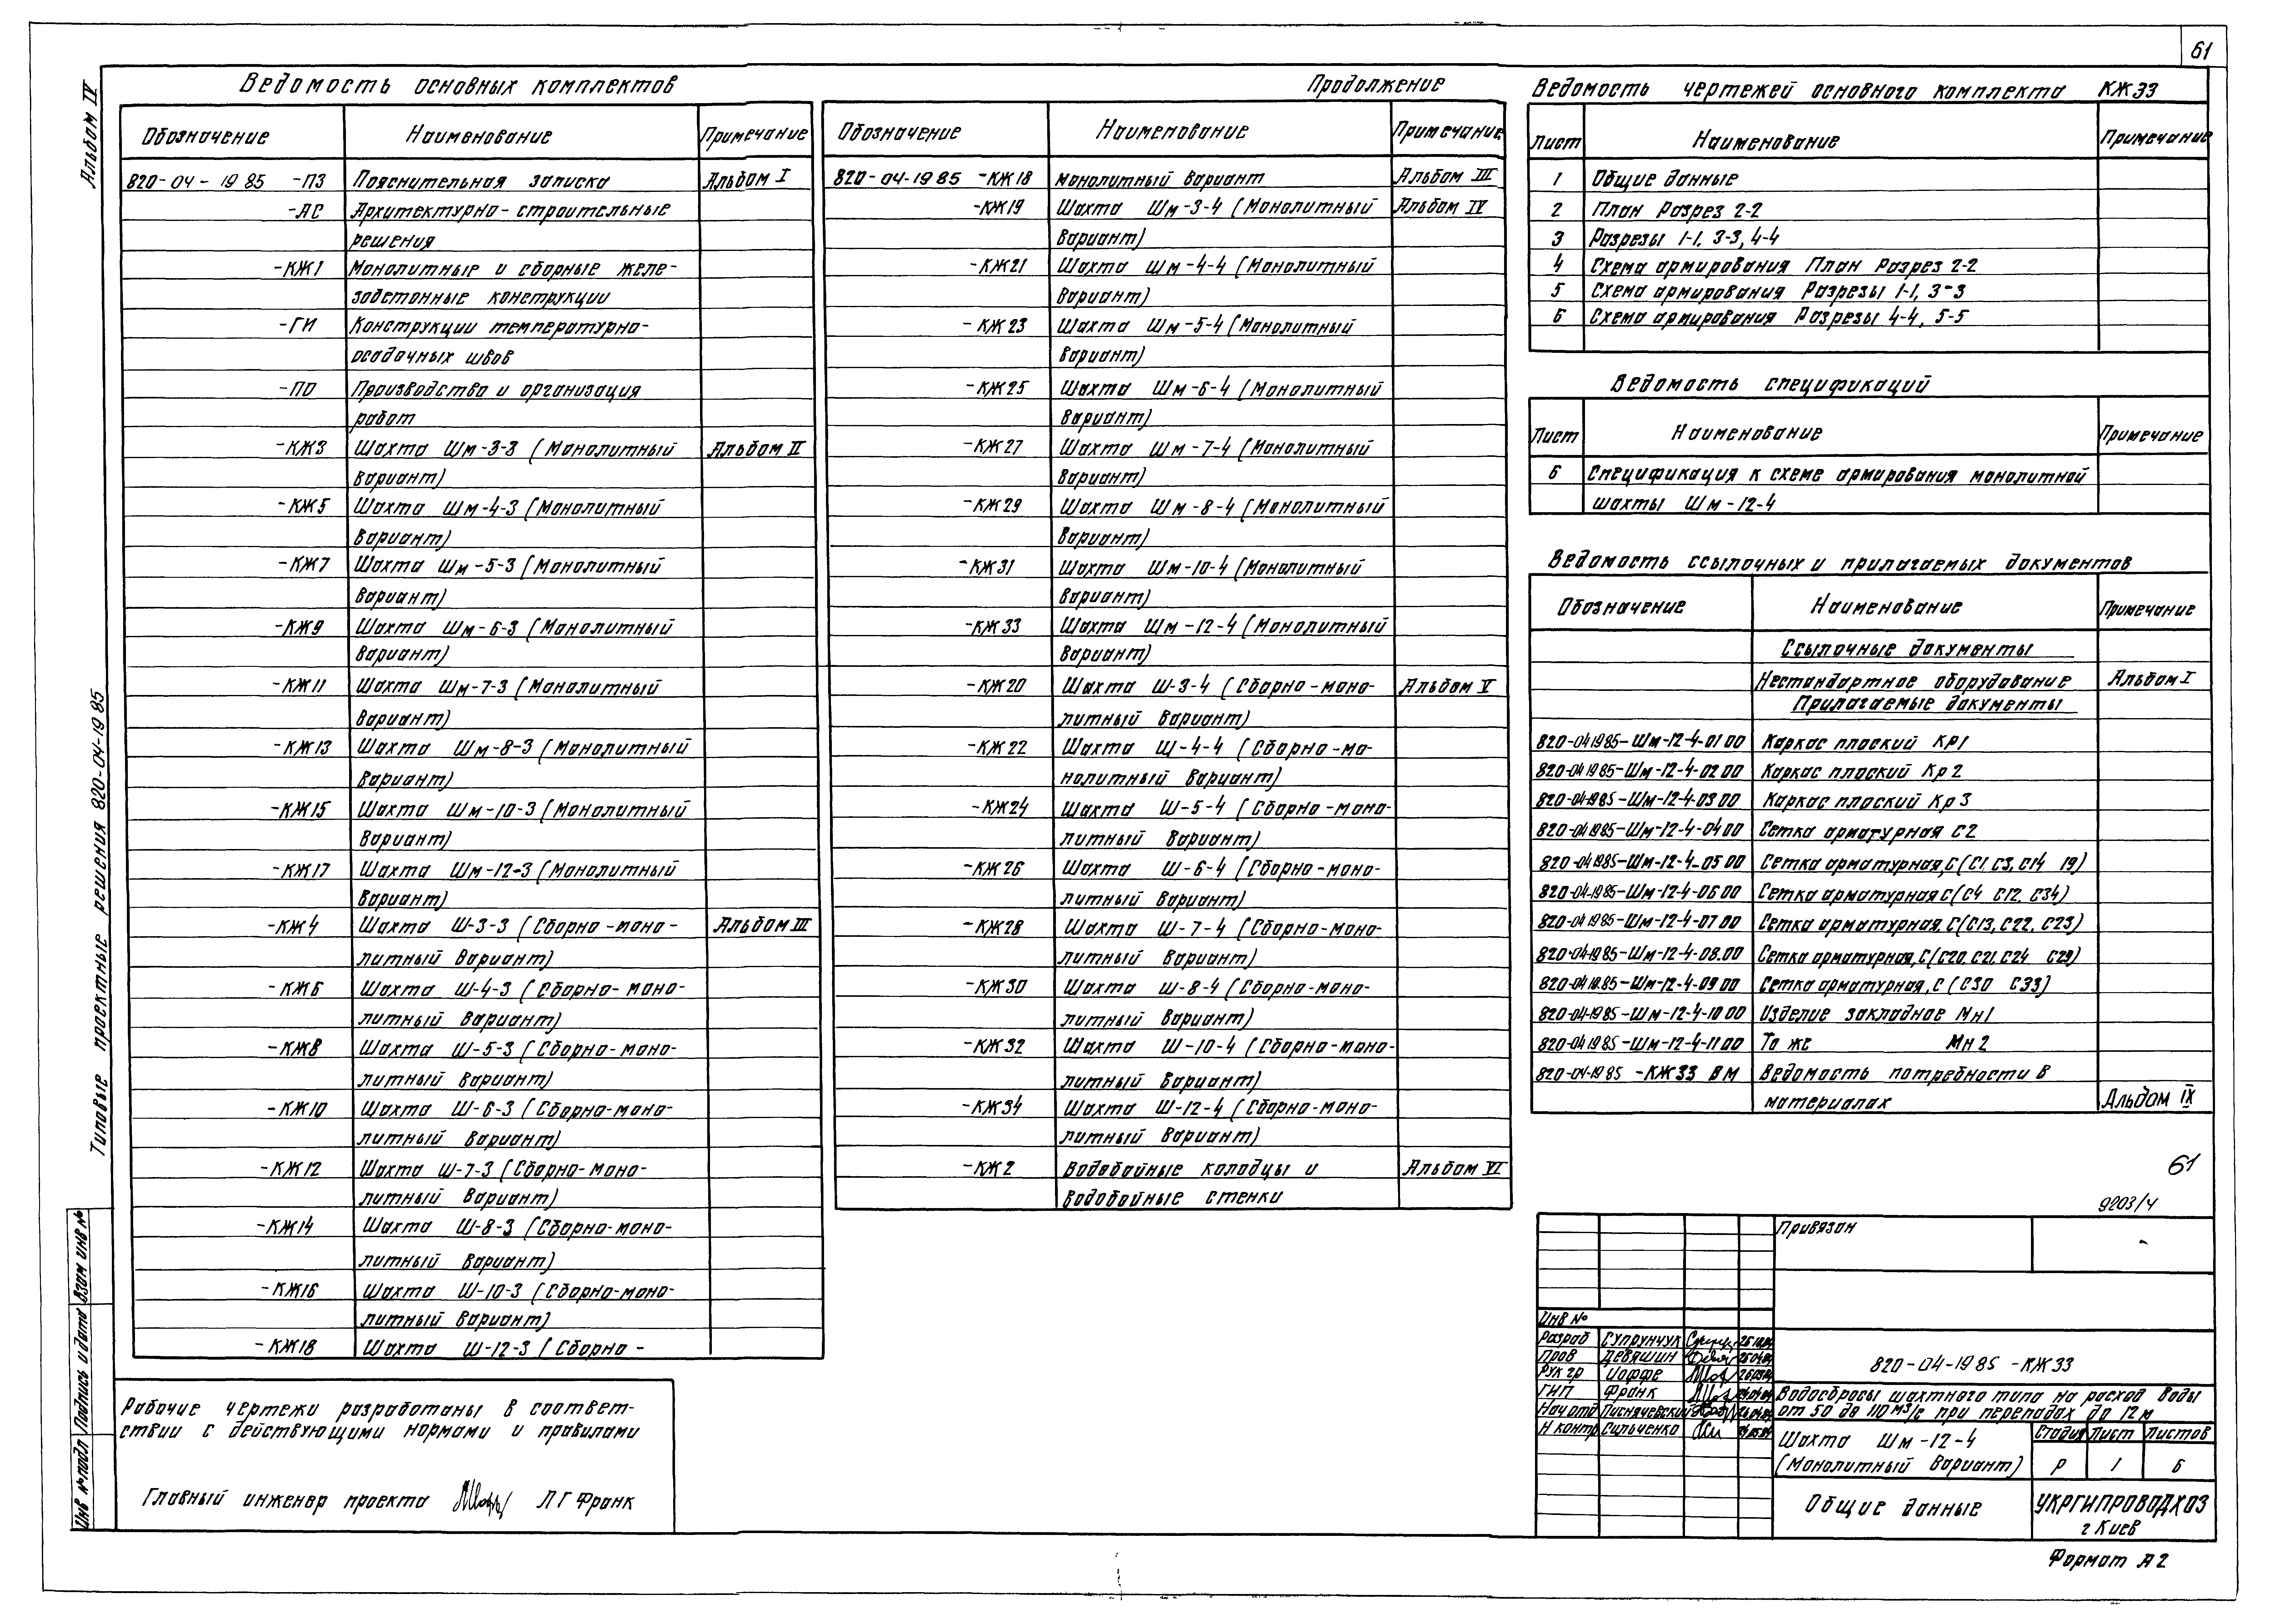 61
Альбом IV
Типовые проектные решения 820-04-19 85
Ведомость основных комплектов
Обозначение Наименование Примечание
820-04-19 85 -ПЗ Пояснительная записка Альбом I
-АС Архитектурно-строительные
решения
-КЖ1 Монолитные и сборные желе-
зобетонные конструкции
-ГИ Конструкции температурно-
осадочных швов
-ПО Производство и организация
работ
-КЖ3 Шахта Шм-3-3 (Монолитный Альбом II
вариант)
-КЖ5 Шахта Шм-4-3 (Монолитный
вариант)
-КЖ7 Шахта Шм-5-3 (Монолитный
вариант)
-КЖ9 Шахта Шм-6-3 (Монолитный
вариант)
-КЖ11 Шахта Шм-7-3 (Монолитный
вариант)
-КЖ13 Шахта Шм-8-3 (Монолитный
вариант)
-КЖ15 Шахта Шм-10-3 (Монолитный
вариант)
-КЖ17 Шахта Шм-12-3 (Монолитный
вариант)
-КЖ4 Шахта Ш-3-3 (Сборно-моно- Альбом III
литный вариант)
-КЖ6 Шахта Ш-4-3 (Сборно-моно-
литный вариант)
-КЖ8 Шахта Ш-5-3 (Сборно-моно-
литный вариант)
-КЖ10 Шахта Ш-6-3 (Сборно-моно-
литный вариант)
-КЖ12 Шахта Ш-7-3 (Сборно-моно-
литный вариант)
-КЖ14 Шахта Ш-8-3 (Сборно-моно-
литный вариант)
-КЖ16 Шахта Ш-10-3 (Сборно-моно-
литный вариант)
-КЖ18 Шахта Ш-12-3 (Сборно-
Продолжение
Обозначение Наименование Примечание
820-04-19 85 -КЖ18 монолитный вариант Альбом III
-КЖ19 Шахта Шм-3-4 (Монолитный Альбом IV
вариант)
-КЖ21 Шахта Шм-4-4 (Монолитный
вариант)
-КЖ23 Шахта Шм-5-4 (Монолитный
вариант)
-КЖ25 Шахта Шм-6-4 (Монолитный
вариант)
-КЖ27 Шахта Шм-7-4 (Монолитный
вариант)
-КЖ29 Шахта Шм-8-4 (Монолитный
вариант)
-КЖ31 Шахта Шм-10-4 (Монолитный
вариант)
-КЖ33 Шахта Шм-12-4 (Монолитный
вариант)
-КЖ20 Шахта Ш-3-4 (Сборно-моно- Альбом V
литный вариант)
-КЖ22 Шахта Ш-4-4 (Сборно-мо-
нолитный вариант)
-КЖ24 Шахта Ш-5-4 (Сборно-моно-
литный вариант)
-КЖ26 Шахта Ш-6-4 (Сборно-моно-
литный вариант)
-КЖ28 Шахта Ш-7-4 (Сборно-моно-
литный вариант)
-КЖ30 Шахта Ш-8-4 (Сборно-моно-
литный вариант)
-КЖ32 Шахта Ш-10-4 (Сборно-моно-
литный вариант)
-КЖ34 Шахта Ш-12-4 (Сборно-моно-
литный вариант)
-КЖ2 Водобойные колодцы и Альбом VI
водобойные стенки
Ведомость чертежей основного комплекта КЖ33
Лист Наименование Примечание
1 Общие данные
2 План Разрез 2-2
3 Разрезы 1-1, 3-3, 4-4
4 Схема армирования План Разрез 2-2
5 Схема армирования Разрезы 1-1, 3-3
6 Схема армирования Разрезы 4-4, 5-5
Ведомость спецификаций
Лист Наименование Примечание
6 Спецификация к схеме армирования монолитной
шахты Шм-12-4
Ведомость ссылочных и прилагаемых документов
Обозначение Наименование Примечание
Ссылочные документы
Нестандартное оборудование Альбом I
Прилагаемые документы
820-04 19 85-Шм-12-4-01 00 Каркас плоский Кр1
820-04 19 85-Шм-12-4-02 00 Каркас плоский Кр 2
820-04-19 85-Шм-12-4-03 00 Каркас плоский Кр 3
820-04 19 85-Шм-12-4-04 00 Сетка арматурная С2
820-04-19 85-Шм-12-4-05 00 Сетка арматурная, С (С1, С3, С14 19)
820-04-19 85-Шм-12-4-06 00 Сетка арматурная С (С4 С12, С34)
820-04-19 85-Шм-12-4-07 00 Сетка арматурная, С (С13, С22, С23)
820-04-19 85-Шм-12-4-08.00 Сетка арматурная, С (С20, С21, С24 С29)
820-04-19.85-Шм-12-4-09 00 Сетка арматурная, С (С30 С33)
820-04-19 85-Шм-12-4-10 00 Изделие закладное Мн1
820-04-19 85-Шм-12-4-11 00 То же Мн 2
820-04-19 85 -КЖ33 ВМ Ведомость потребности в
материалах Альбом IX
61
9203/4
Привязан
Инв №
Разраб Супрунчук
Пров Девяшин
Рук гр Иоффе
ГИП Франк
Нач отд
Н контр Сильченко
820-04-19 85 -КЖ33
Водосбросы шахтного типа на расход воды
от 50 до 110 м³/с при перепадах до 12 м
Шахта Шм-12-4
(Монолитный вариант)
Стадия Лист Листов
Р 1 6
Общие данные
УКРГИПРОВОДХОЗ
г Киев
Формат А2
Рабочие чертежи разработаны в соответ-
ствии с действующими нормами и правилами
Главный инженер проекта Л Г Франк
Взам инв №
Подпись и дата
Инв № подл